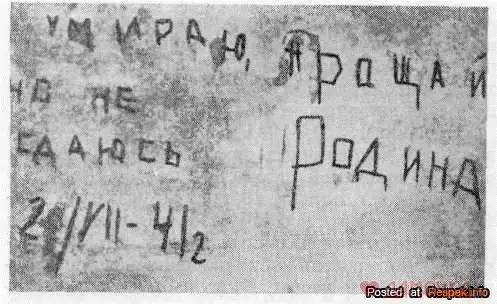 УМИРАЮ,
НО НЕ
СДАЮСЬ
ПРОЩАЙ
РОДИНА
20/VII-41г
Posted at Reapek.info